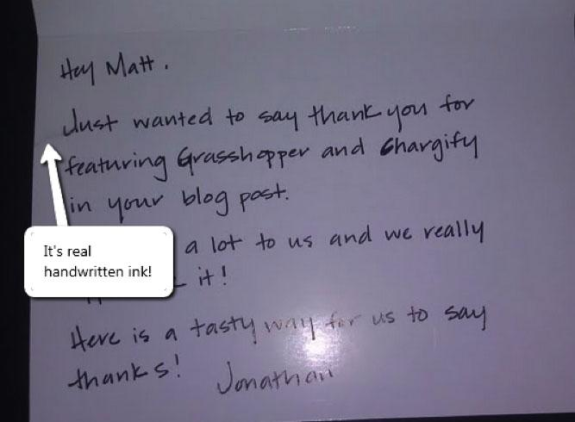 Hey Matt.
Just wanted to say thank you for
featuring Grasshopper and Chargify
in your blog post.
a lot to us and we really
it!
Here is a tasty way for us to say
thanks!
Jonathan
It's real
handwritten ink!